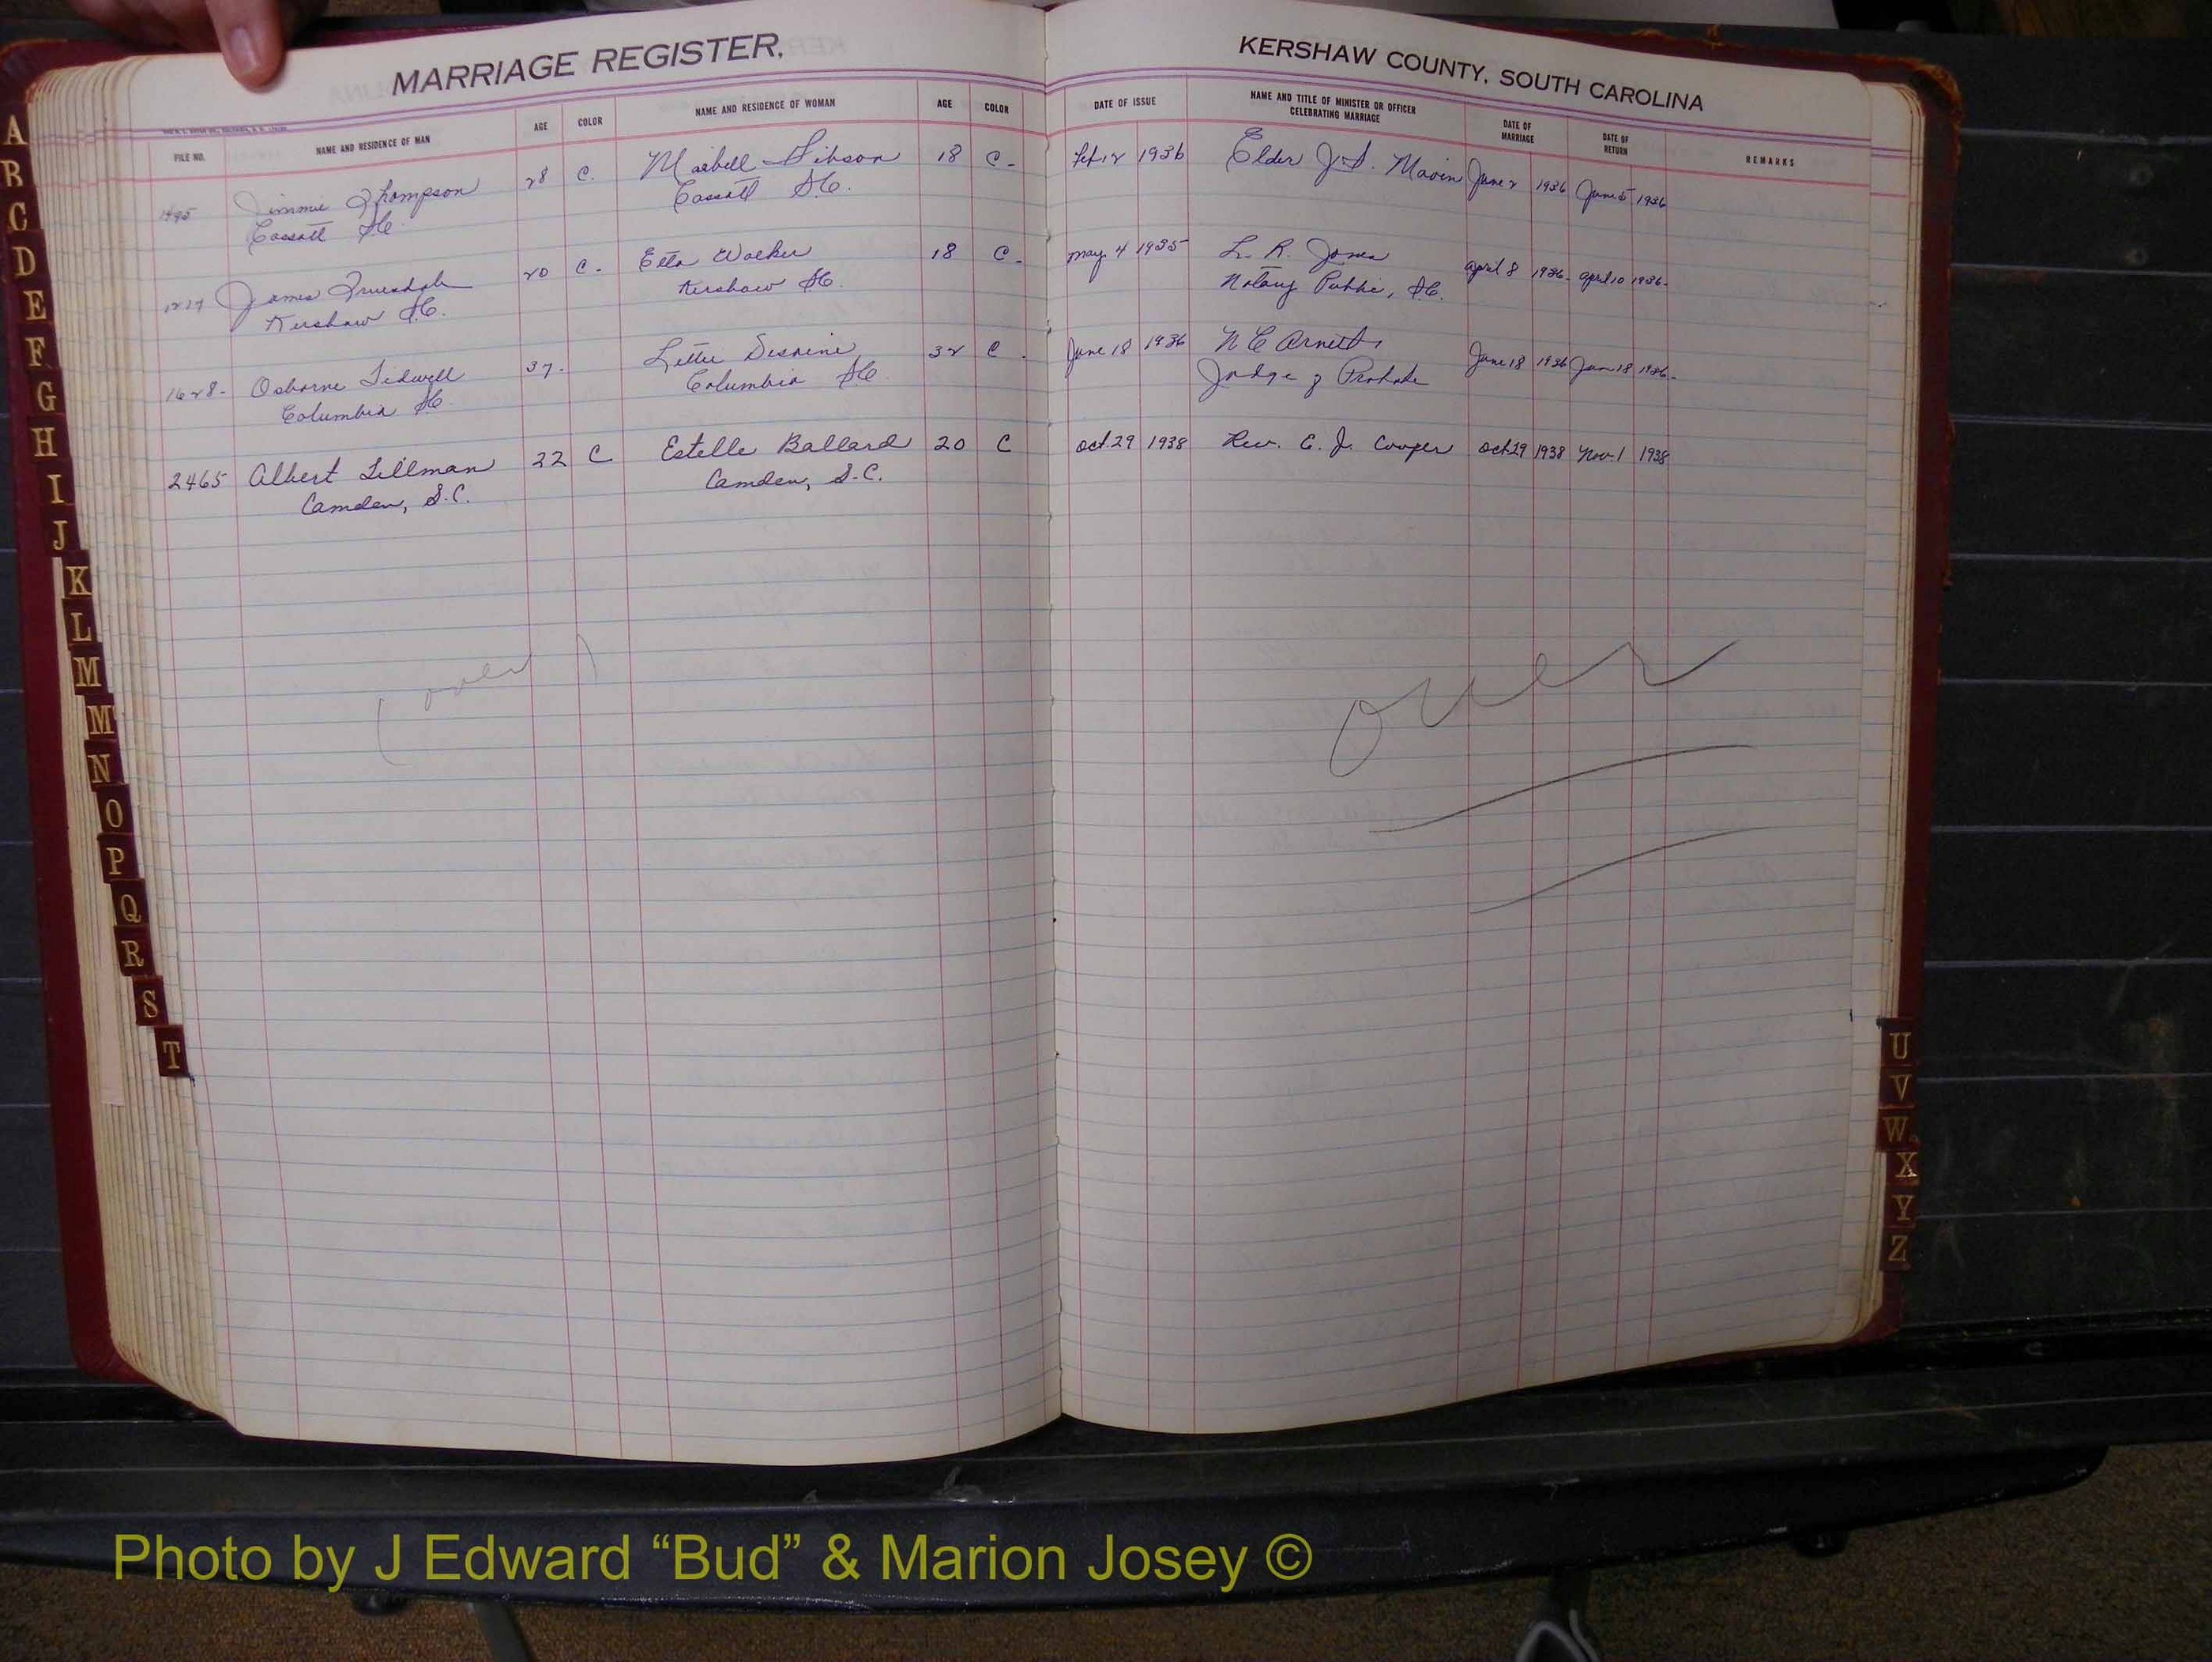 MARRIAGE REGISTER,
KERSHAW COUNTY, SOUTH CAROLINA
FILE NO.
NAME AND RESIDENCE OF MAN
AGE
COLOR
NAME AND RESIDENCE OF WOMAN
AGE
COLOR
DATE OF ISSUE
NAME AND TITLE OF MINISTER OR OFFICER
CELEBRATING MARRIAGE
DATE OF
MARRIAGE
DATE OF
RETURN
REMARKS
1495 Jimmie Thompson 28 C. Maebell Gibson 18 C- Feb 12 1936 Elder J. S. June 2 1936 June 5 1936
Cassatt SC. Cassatt SC.
James Truesdale 20 C. Etta Walker 18 C. May 4 1935 L. R. Jones april 8 1936- april 10 1936-
Kershaw SC. Kershaw SC. Notary Public, SC.
1628- Osborne Tidwell 37. Lettie 32 C. June 18 1936 N C Arnett June 18 1936 June 18 1936-
Columbia SC. Columbia SC Judge of Probate
2465 Albert Tillman 22 C Estelle Ballard 20 C Oct. 29 1938 Rev. E. J. Cooper Oct 29 1938 Nov. 1 1938
Camden, S.C. Camden, S.C.
(over)
over
A
B
C
D
E
F
G
H
I
J
K
L
M
M
N
O
P
Q
R
S
T
U
V
W
X
Y
Z
Photo by J Edward “Bud” & Marion Josey ©